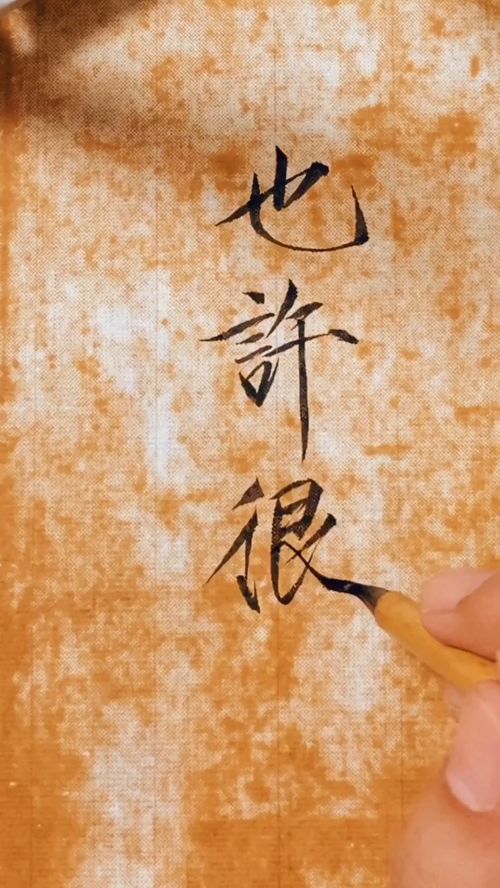 也許很